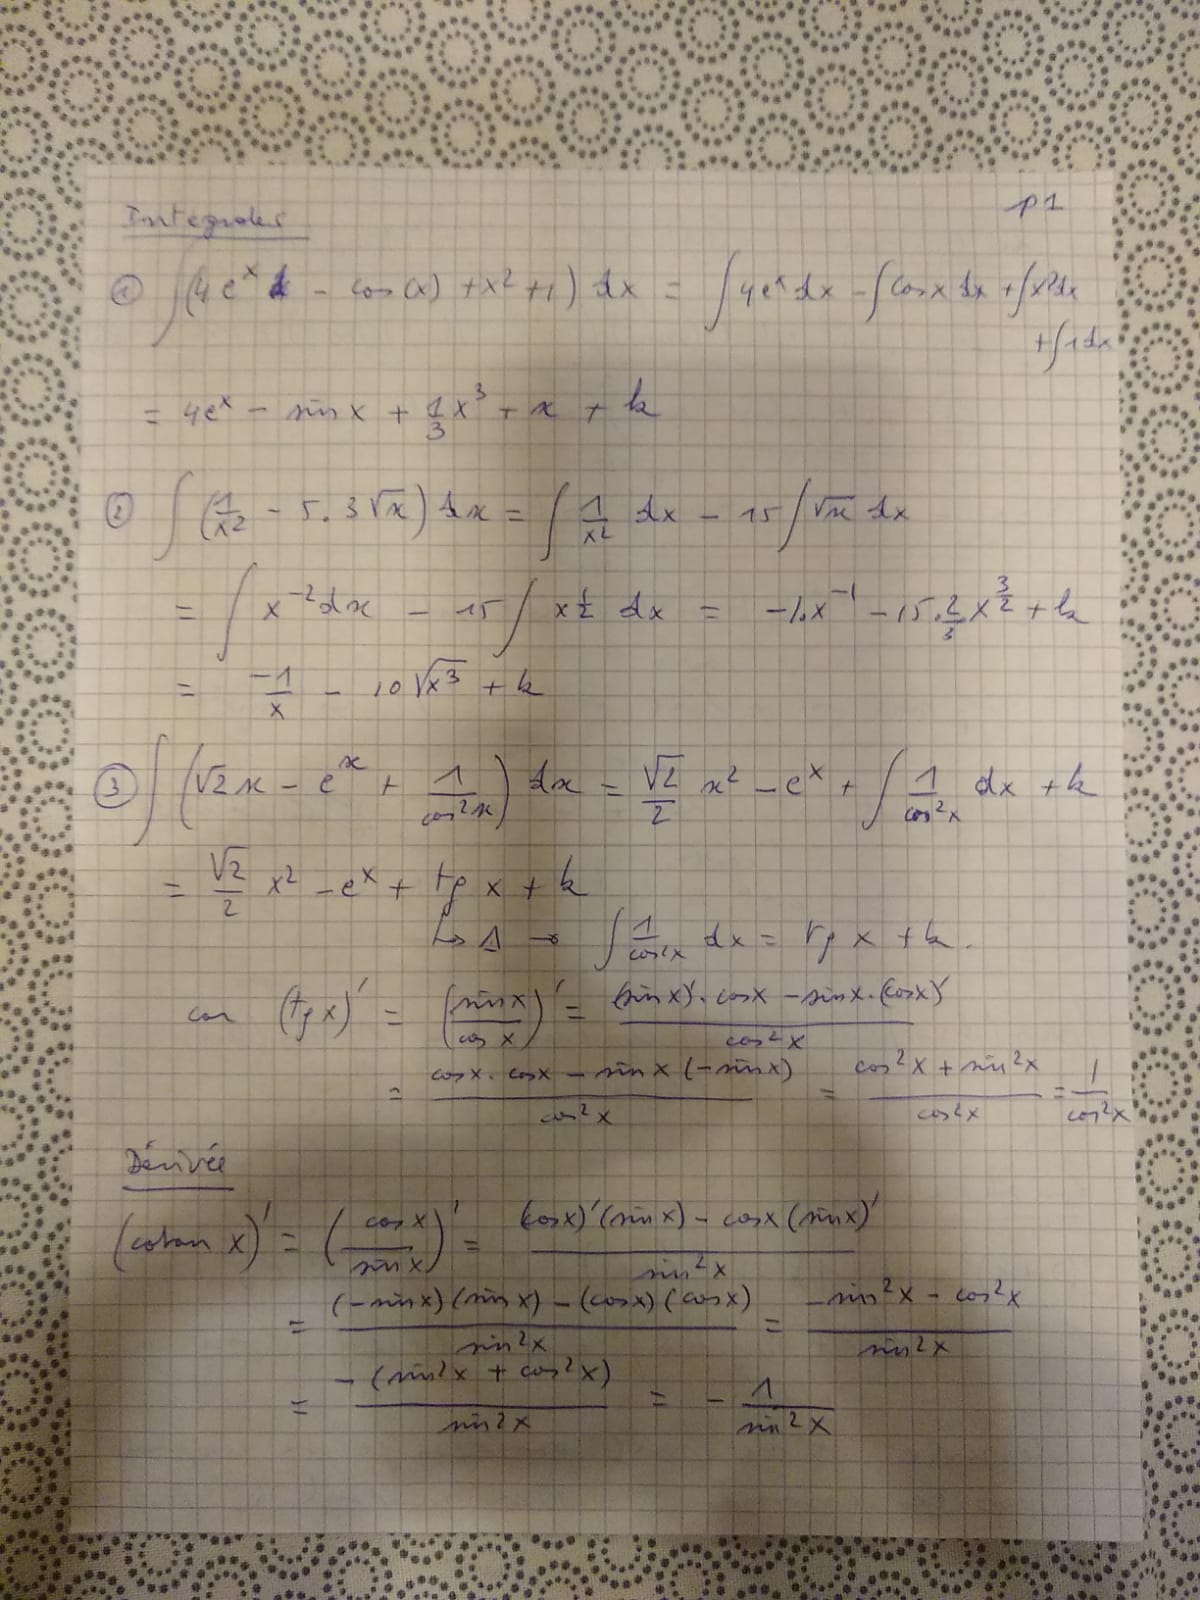 Integrales
p1
① ∫(4e^x - cos(x) + x² + 1) dx = ∫4e^x dx - ∫cos x dx + ∫x² dx
+ ∫1 dx
= 4e^x - sin x + 1/3 x³ + x + k
② ∫(1/x² - 5.3√x) dx = ∫ 1/x² dx - 15 ∫√x dx
= ∫ x^-2 dx - 15 ∫ x^1/2 dx = -1.x^-1 - 15.2/3 x^3/2 + k
= -1/x - 10√x³ + k
③ ∫(√2x - e^x + 1/cos²x) dx = √2/2 x² - e^x + ∫ 1/cos²x dx + k
= √2/2 x² - e^x + tg x + k
↳ ⚠ → ∫ 1/cos²x dx = tg x + k.
car (tg x)' = (sin x/cos x)' = ((sin x)'.cos x - sin x.(cos x)')/cos²x
= (cos x.cos x - sin x (-sin x))/cos²x = (cos²x + sin²x)/cos²x = 1/cos²x
Dérivée
(cotan x)' = (cos x/sin x)' = ((cos x)'(sin x) - cos x (sin x)')/sin²x
= ((-sin x)(sin x) - (cos x)(cos x))/sin²x = (-sin²x - cos²x)/sin²x
= -(sin²x + cos²x)/sin²x = - 1/sin²x